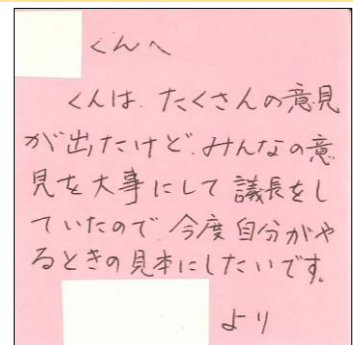 くんへ
くんは、たくさんの意見
が出たけど、みんなの意
見を大事にして議長をし
ていたので、今度自分がや
るときの見本にしたいです。
より